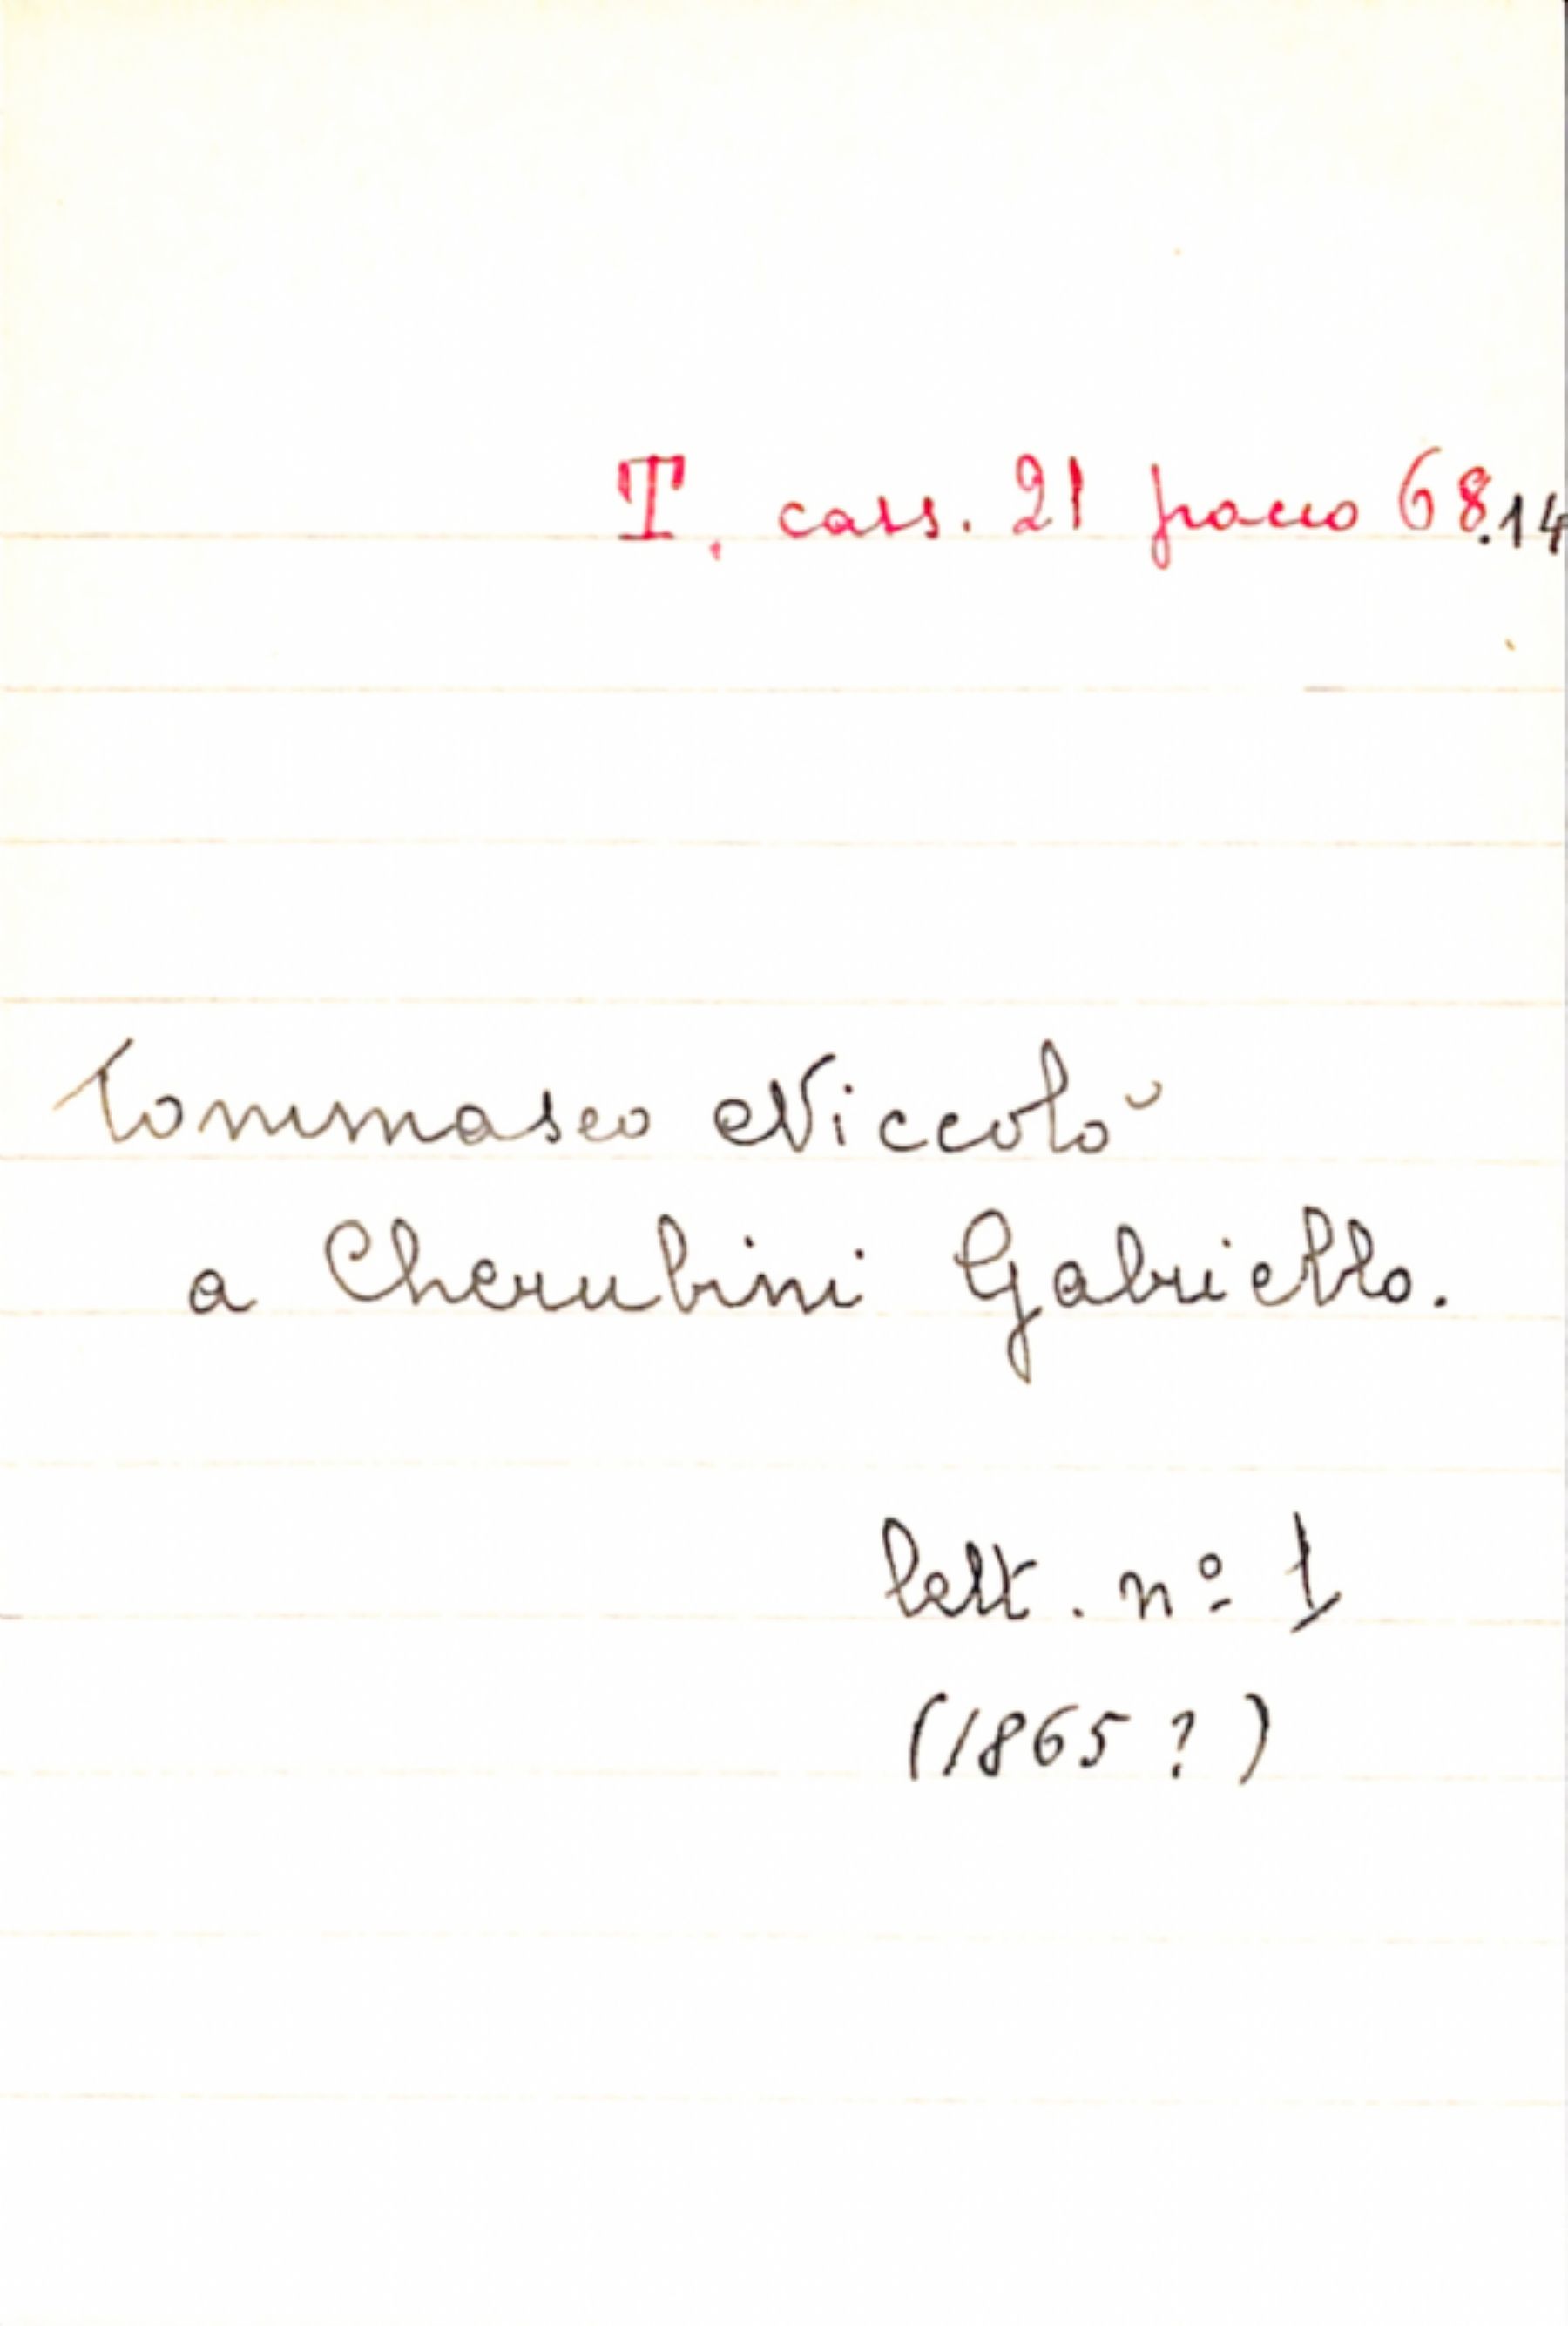 T. cass. 21 pacco 68.14
Tommaseo Niccolò
a Cherubini Gabriello.
lett. nº 1
(1865?)